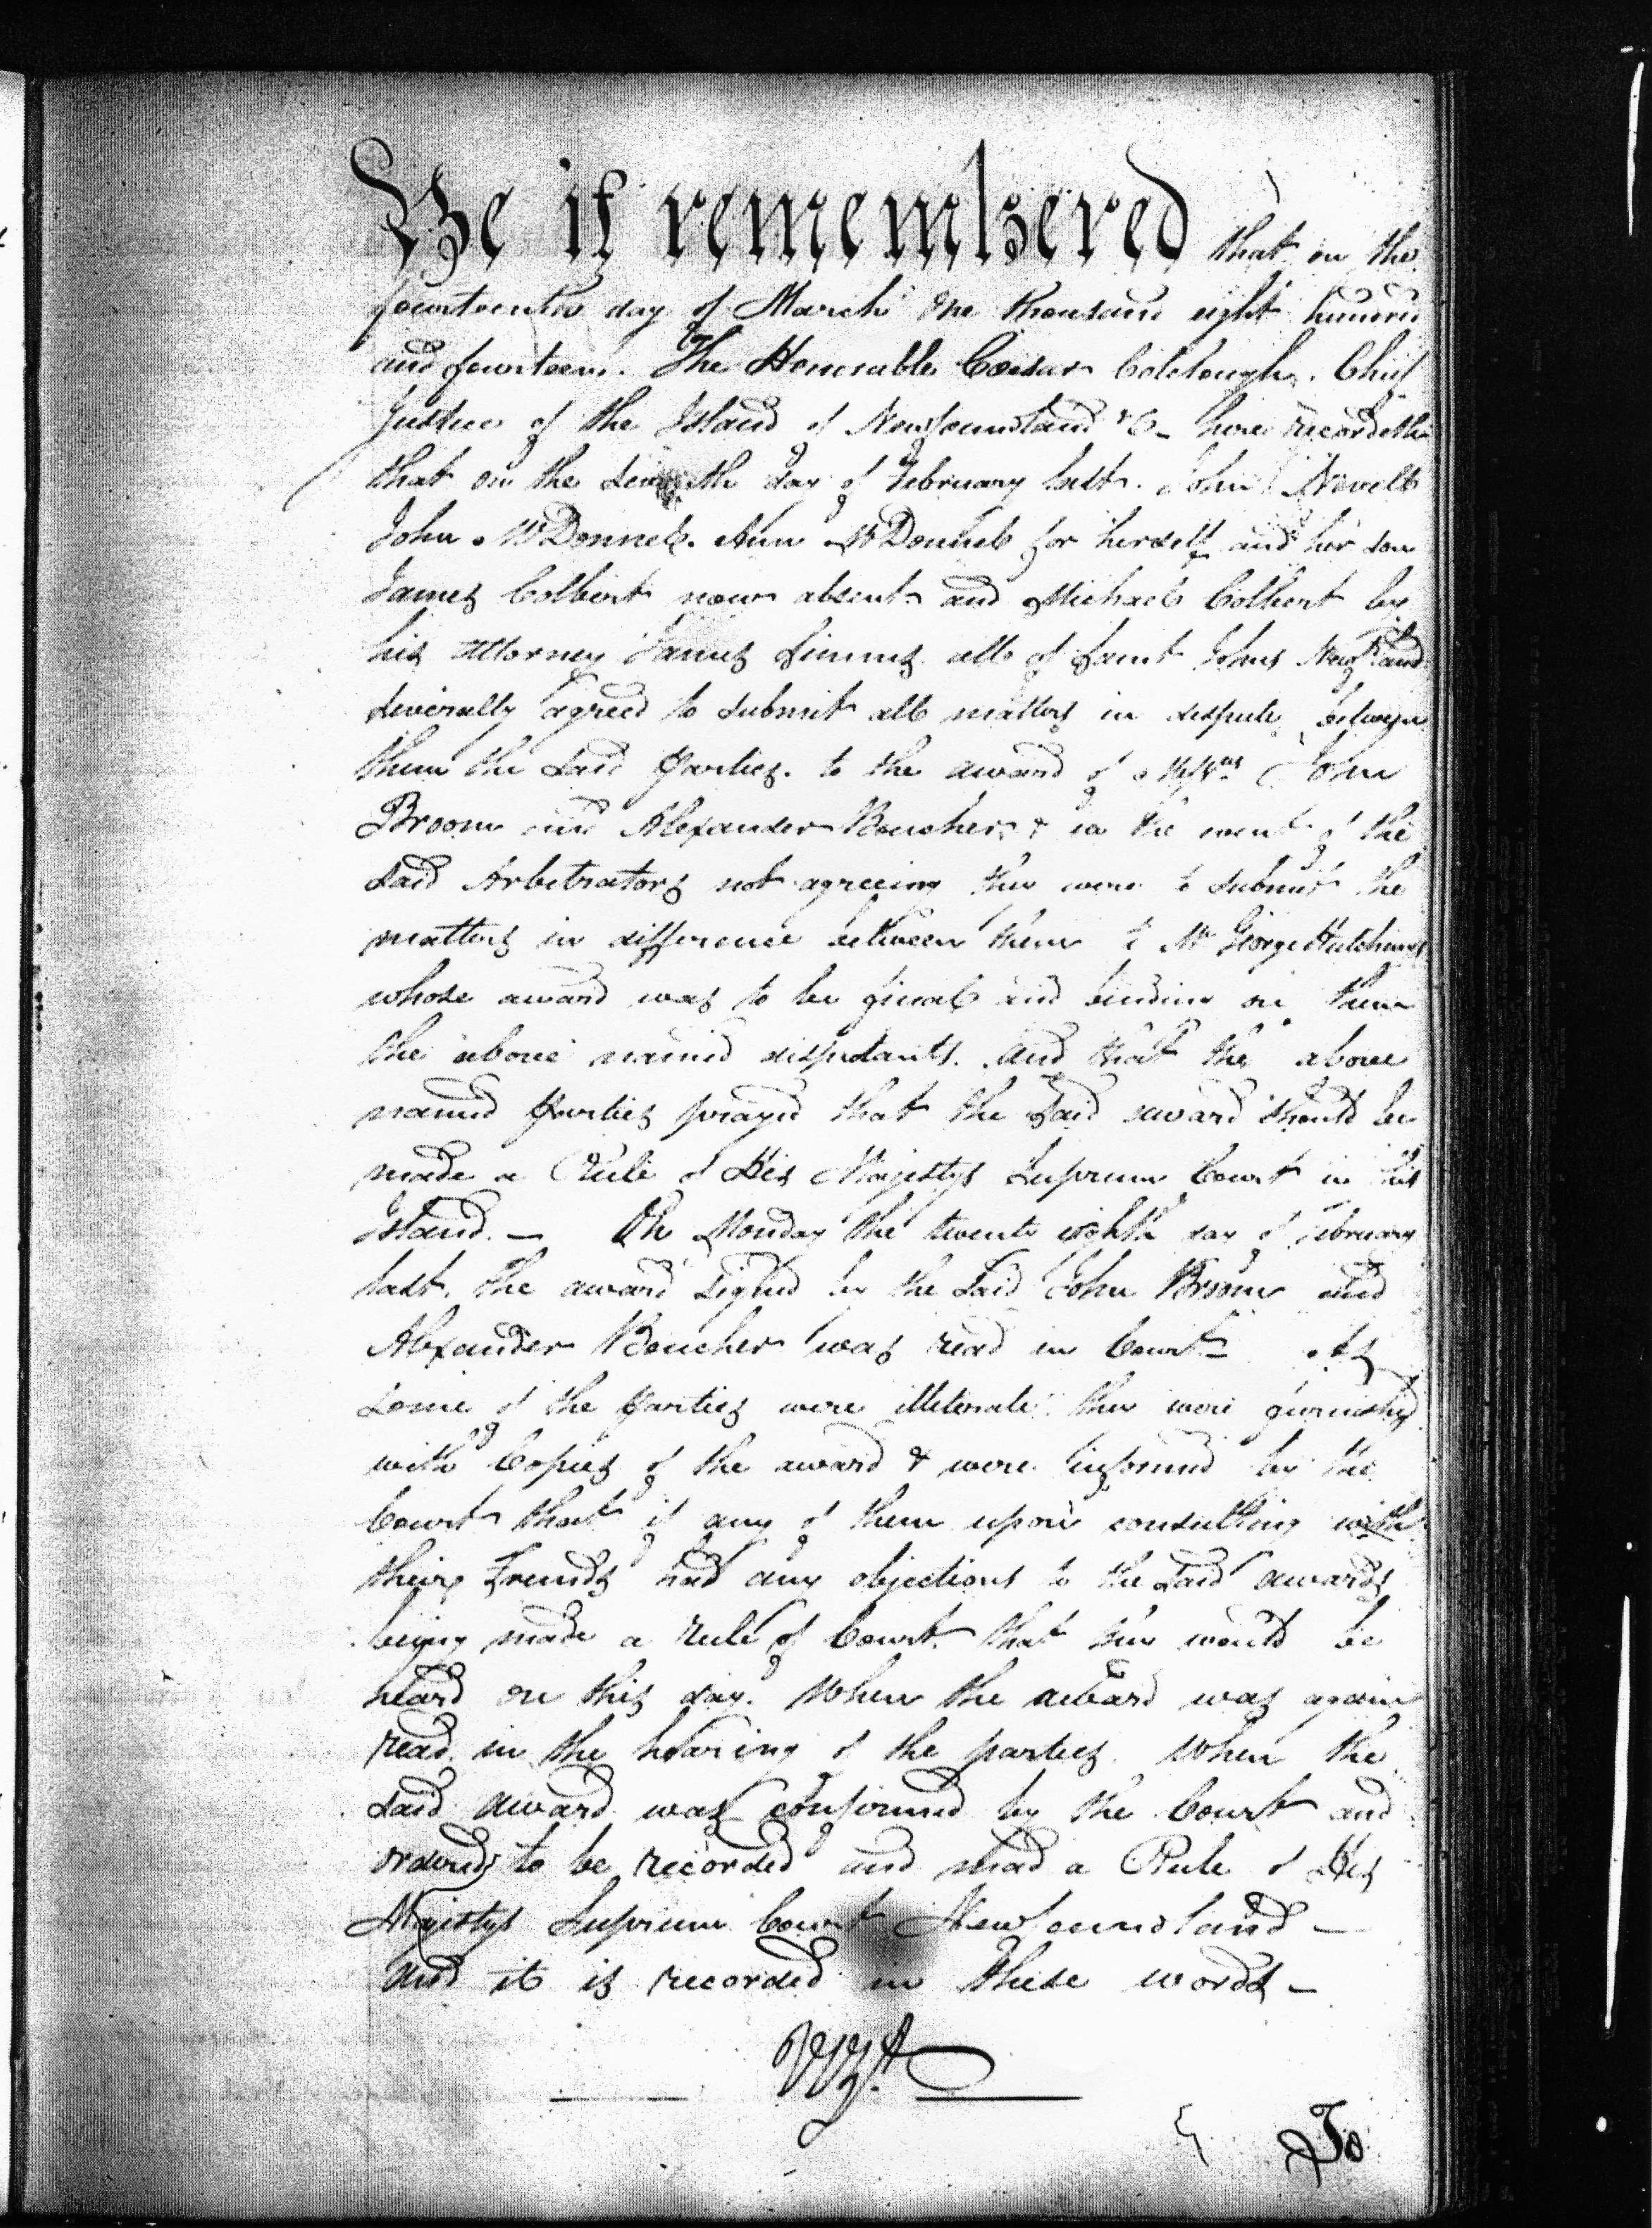 Be it remembered that on the
fourteenth day of March One thousand eight hundred
and fourteen. The Honorable Cæsar Colclough. Chief
Justice of the Island of Newfoundland &c - here recordeth
that on the day of February last. John Newell
John McDonnel. Ann McDonnel for herself and her son
James Colbert now absent and Michael Colbert by
his Attorney James Simms all of Saint Johns Newfland
severally agreed to submit all matters in dispute between
them the said Parties. to the award of John
Broom and Alexander Boucher, & in the event of the
said Arbitrators not agreeing they were to submit the
matters in difference between them to Mr George Hutchings
whose award was to be final and binding on them
the above named disputants. And that the above
named Parties prayed that the said award should be
made a Rule of His Majestys Supreme Court in this
Island. - On Monday the twenty eighth day of February
last. the award signed by the said John Broom and
Alexander Boucher was read in Court - As
some of the Parties were illiterate they were furnished
with Copies of the award & were informed by the
Court that if any of them upon consulting with
their Friends had any objections to the said awards
being made a rule of Court. that they would be
heard on this day. When the award was again
read in the hearing of the parties. When the
said award was confirmed by the Court and
ordered to be recorded and mad a Rule of His
Majestys Supreme Court Newfoundland -
And it is recorded in these words -
To